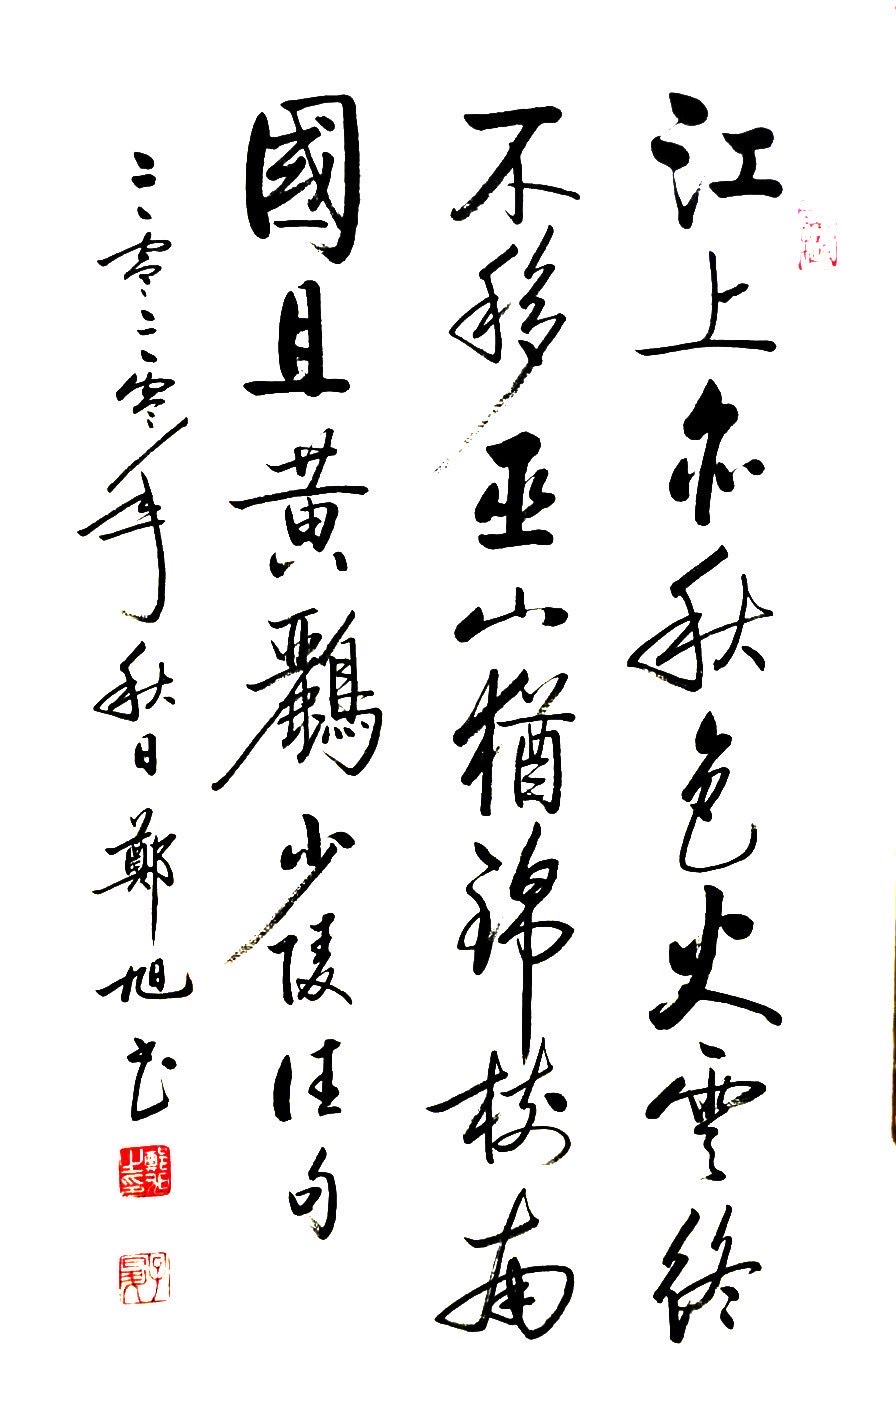 江上亦秋色火雲終
不移巫山猶錦樹南
國且黄鸝少陵佳句
二零二零年秋日鄭旭书